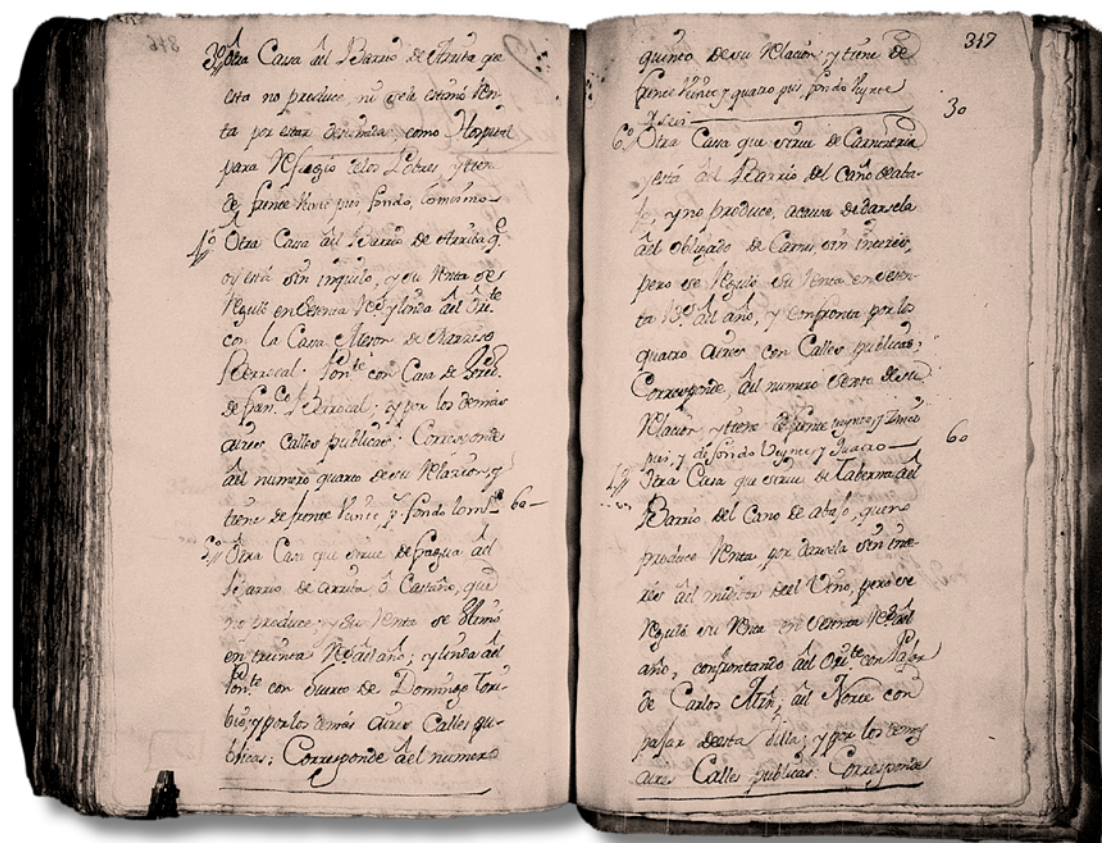 3º Otra Casa àel Barrio de Arriba que
esta no produce, ni se le estimó Ren-
ta por estar destinada como Hospital
para Refugio de los Pobres, y tiene
de frente veinte pies fondo, lo mismo
4º Otra Casa àel Barrio de Arriba q.e
oy está sin inquilo, y su Renta se
Reguló en sesenta Rs y linda àel Ori.te
con la Casa Meson de
Berrocal. Pon.te con Casa de
de Fran.co Berrocal; y por los demás
aires Calles publicas: Corresponde
àel numero quarto de su Relacion, y
tiene de frente veinte p.s fondo lo mis.o 60
5º Otra Casa que sirve de fragua àel
Barrio de arriba ô Castaño, que
no produce; y su Renta se estimó
en treinta Rs àel año; y linda àel
Pon.te con Huerto de Domingo Tori-
bio; y por los demás aires Calles pu-
blicas: Corresponde àel numero
317
quinto de su Relacion, y tiene de
frente veinte y quatro pies, fondo veynte
y seis 30
6º Otra Casa que sirve de Carnizeria
y está àel Barrio del Caño de aba-
jo, y no produce, a causa de darsela
àel obligado de Carnes, sin interes,
pero se Reguló su Renta en sesen-
ta Rs àel año, y confronta por los
quatro aires con Calles publicas;
Corresponde, àel numero sexto de su
Relacion y tiene de frente veynte y zinco
pies, y de fondo veynte y quatro 60
Otra Casa que sirve de Taberna àel
Barrio del Cano de abajo, que no
produce Renta por darsela sin inte-
res àel medidor del Vino, pero se
Reguló su Renta en sesenta Rs àel
año, confrontando àel Ori.te con Pajar
de Carlos Mrn, àel Norte con
pajar de esta Villa; y por los demas
aires Calles publicas: Corresponde